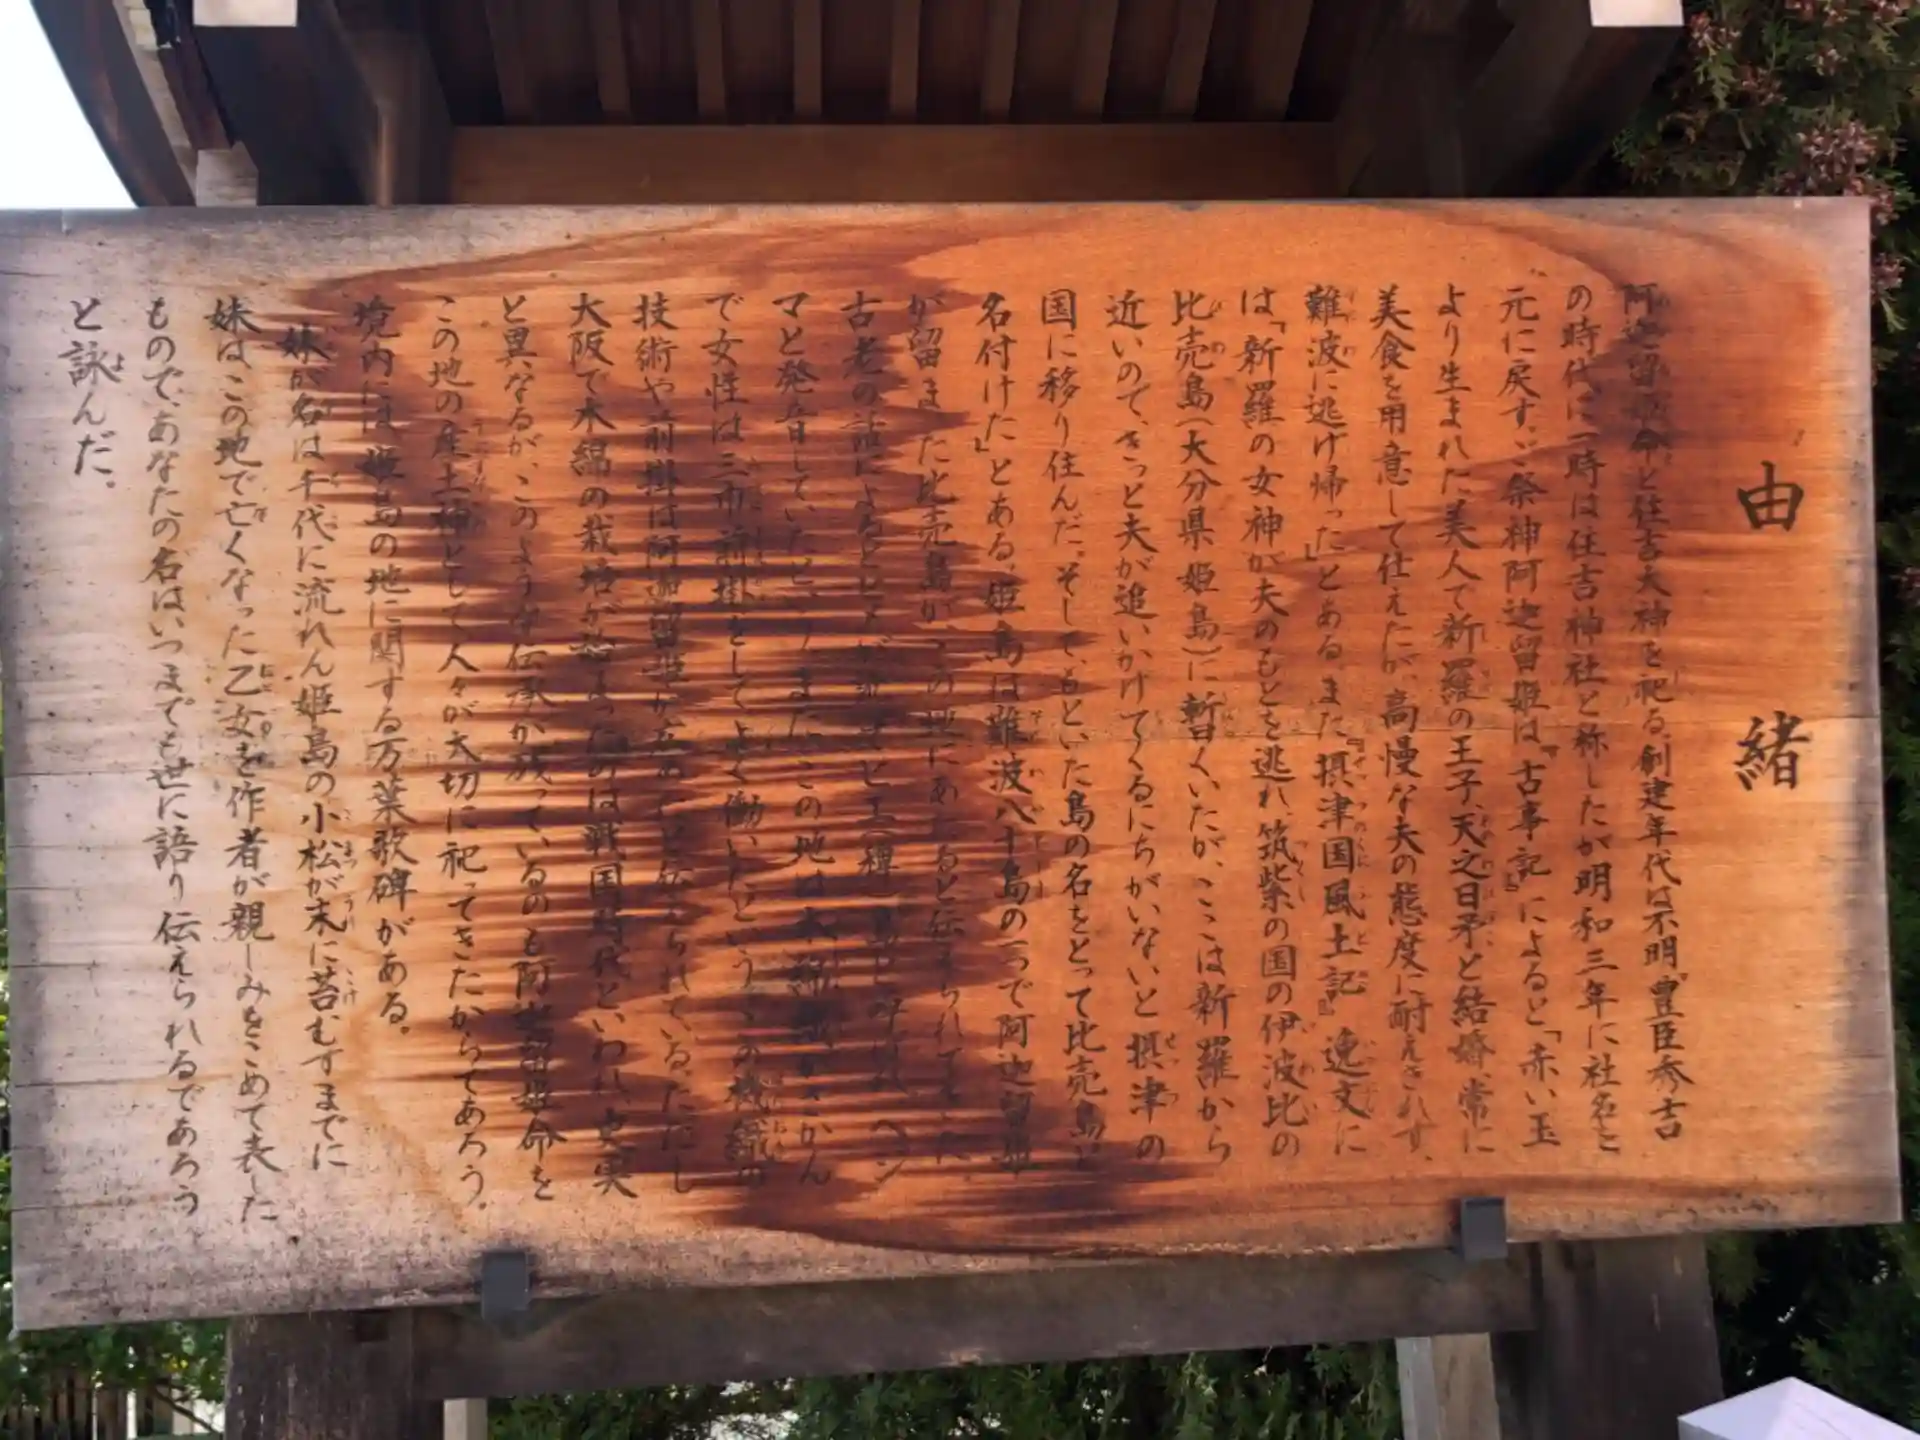 由緒
阿迦留姫命と住吉大神を祀る。創建年代は不明。豊臣秀吉
の時代に一時は住吉神社と称したが明和三年に社名を
元に戻す。ご祭神阿迦留姫は、『古事記』によると「赤い玉
より生まれた美人で新羅の王子、天之日矛、と結婚、常に
美食を用意して仕えたが、高慢な夫の態度に耐えきれず、
難波に逃げ帰った」とある。また『摂津国風土記』逸文に
は「新羅の女神が夫のもとを逃れ、筑紫の国の伊波比の
比売島(大分県姫島)に暫くいたが、ここは新羅から
近いので、きっと夫が追いかけてくるにちがいない、と摂津の
国に移り住んだ。そして、もといた島の名をとって比売島と
名付けた」とある。姫島は難波八十島の一つで阿迦留姫
が留まった比売島がこの地にあたると伝えられてきた
古老の話によると
マと発音していたという。またこの地は木綿
で女性は三巾前掛をしてよく働いたという。この機織の
技術や前掛は阿迦留姫が広めたと伝えられている。ただし
大阪で木綿の栽培が始まったのは戦国時代といわれ、史実
と異なるが、このような伝承が残っているのも阿迦留姫命を
この地の産土神として人々が大切に祀ってきたからであろう。
境内には姫島の地に関する万葉歌碑がある。
妹が名は千代に流れん姫島の小松が末に苔むすまでに
妹はこの地で亡くなった乙女を作者が親しみをこめて表した
もので、あなたの名はいつまでも世に語り伝えられるであろう
と詠んだ。